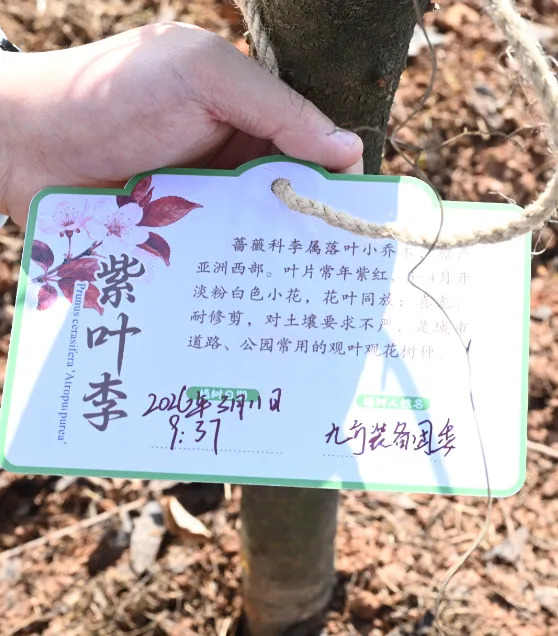 紫叶李
Prunus cerasifera 'Atropurpurea'
蔷薇科李属落叶小乔木，原产
亚洲西部。叶片常年紫红，3-4月开
淡粉白色小花，花叶同放；喜光，
耐修剪，对土壤要求不严，是城市
道路、公园常用的观叶观花树种。
植树日期
2026年3月11日
9:37
植树人姓名
装备团委